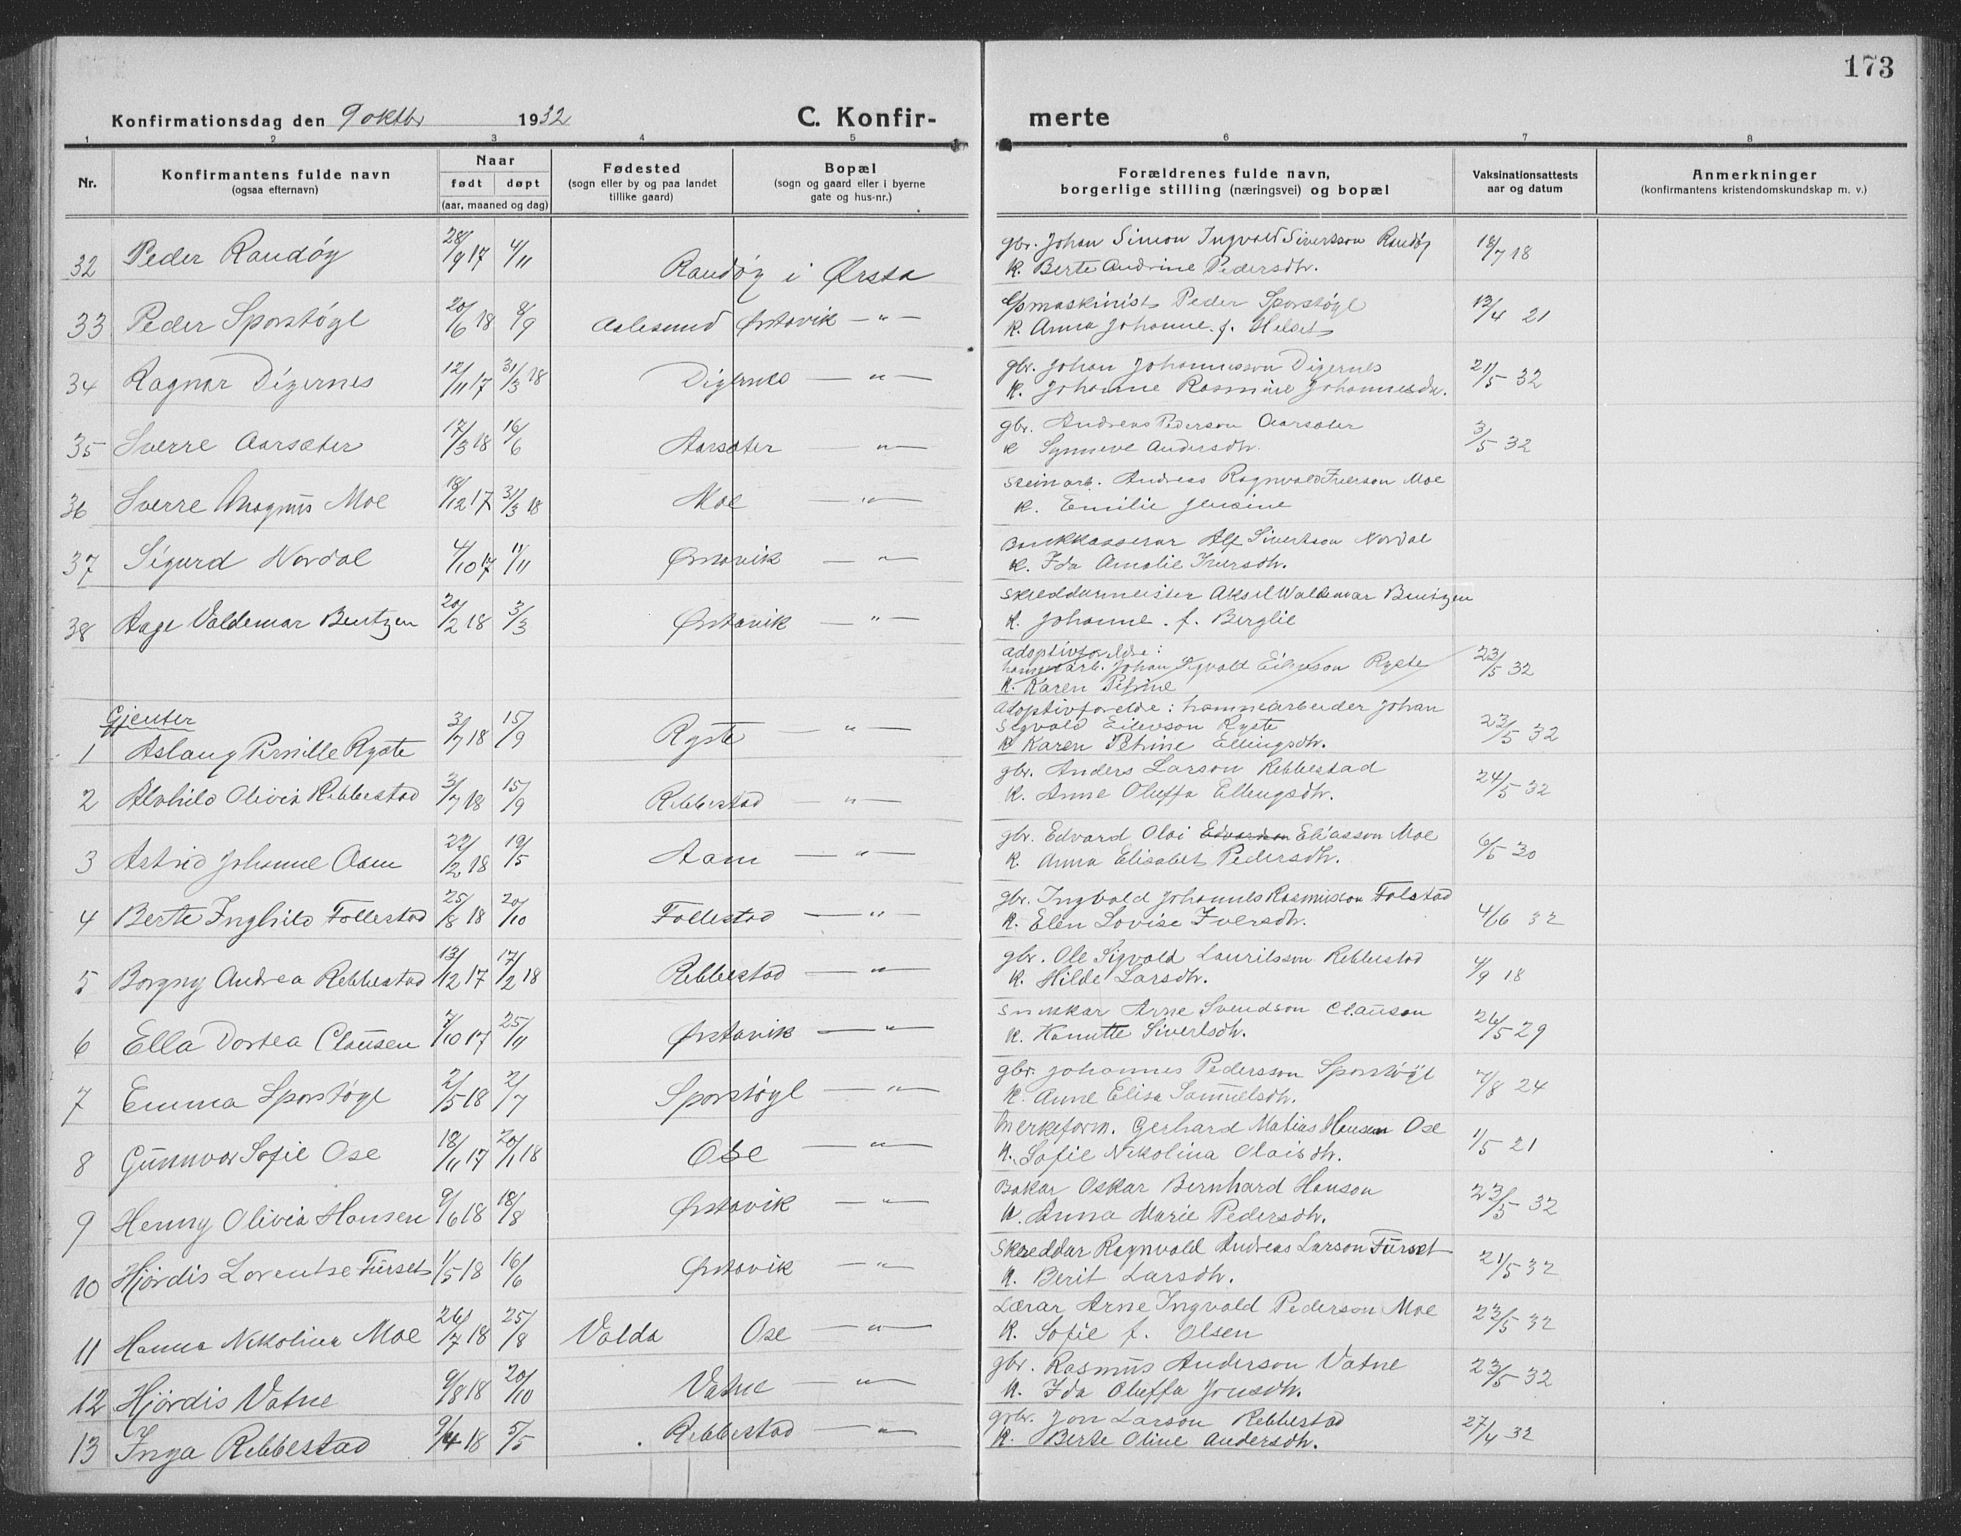 173
Konfirmationsdag den 9 oktbr 1932 C. Konfir- merte
1 2 3 4 5 6 7 8
Nr. Konfirmantens fulde navn (ogsaa efternavn) Naar født døpt (aar, maaned og dag) Fødested (sogn eller by og paa landet tillike gaard) Bopæl (sogn og gaard eller i byerne gate og hus-nr.) Forældrenes fulde navn, borgerlige stilling (næringsvei) og bopæl Vaksinationsattests aar og datum Anmerkninger (konfirmantens kristendomskundskap m. v.)
32 Peder Raudøy 28/9 17 4/11 Raudøy i Ørsta gbr. Johan Simon Ingvald Sivertsson Raudøy 18/7 18
k. Berte Andrine Pedersdtr.
33 Peder Sporstøyl 20/6 18 8/9 Aalesund Ørstavik —"— maskinist Peder Sporstøyl 13/4 21
k. Anna Johanne f. Helset
34 Ragnar Digernes 12/11 17 31/3 18 Digernes —"— gbr. Johan Johannesson Digernes 21/5 32
k. Johanne Rasmine Johannesdtr.
35 Sverre Aarsæter 17/3 18 16/6 Aarsæter —"— gbr. Andreas Pederson Aarsæter 3/5 32
k Synneve Andersdtr.
36 Sverre Magnus Moe 18/12 17 31/3 18 Moe —"— steinarb. Andreas Ragnvald Iverson Moe
k. Emilie Jensine
37 Sigurd Nordal 4/10 17 11/11 Ørstavik —"— Bankkasserar Alf Sivertson Nordal
k. Ida Amalie Iversdtr.
38 Aage Valdemar Bentzen 20/2 18 3/3 Ørstavik —"— skreddarmeister Aksel Waldemar Bentzen
k. Johanne f. Berglie
adoptivforeldre:
Johan Sigvald Eilevson Ryste 23/5 32
k. Karen Petrine
Gjenter
1 Aslaug Pernille Ryste 3/7 18 15/9 Ryste —"— Adoptivforelde: hamnearbeider Johan
Sigvald Eilevson Ryste 23/5 32
k Karen Petrine Ellingsdtr.
2 Alvhild Olivia Rebbestad 3/7 18 15/9 Rebbestad —"— gbr. Anders Larson Rebbestad 24/5 32
k. Anne Oluffa Ellingsdtr.
3 Astrid Johanne Aam 22/2 18 19/5 Aam —"— gbr. Edvard Olai Edvardson Eliasson Moe 6/5 30
k. Anna Elisabet Pedersdtr.
4 Berte Inghild Follestad 25/8 18 20/10 Follestad —"— gbr. Ingvald Johannes Rasmusson Folstad 4/6 32
k. Elen Lovise Iversdtr.
5 Borgny Andrea Rebbestad 13/12 17 17/2 18 Rebbestad —"— gbr. Ole Sigvald Lauritsson Rebbestad 4/9 18
k. Hilde Larsdtr.
6 Ella Dortea Clausen 7/10 17 25/11 Ørstavik —"— Snikkar Arne Svendson Clauson 26/5 29
k. Kanutte Sivertsdtr.
7 Emma Sporstøyl 2/5 18 2/7 Sporstøyl —"— gbr. Johannes Pedersson Sporstøyl 7/8 24
k. Anne Elisa Samuelsdtr.
8 Gunnvor Sofie Ose 18/11 17 20/1 18 Ose —"— Merkeform. Gerhard Matias Hansen Ose 1/5 21
k. Sofie Nikolina Olaisdtr.
9 Henny Olivia Hansen 9/6 18 18/8 Ørstavik —"— Bakar Oskar Bernhard Hanson 23/5 32
k. Anna Marie Pedersdtr.
10 Hjørdis Lorentse Furset 1/5 18 16/6 Ørstavik —"— Skreddar Ragnvald Andreas Larson Furset 21/5 32
k. Berit Larsdtr.
11 Hanna Nikolina Moe 26/7 18 25/8 Volda Ose —"— Lærar Arne Ingvald Pederson Moe 23/5 32
k. Sofie f. Olsen
12 Hjørdis Vatne 9/8 18 20/10 Vatne —"— gbr. Rasmus Anderson Vatne 23/5 32
k. Ida Oluffa Jonsdtr.
13 Inga Rebbestad 9/4 18 5/5 Rebbestad —"— gbr. Jon Larson Rebbestad 27/4 32
k. Berte Oline Andersdtr.